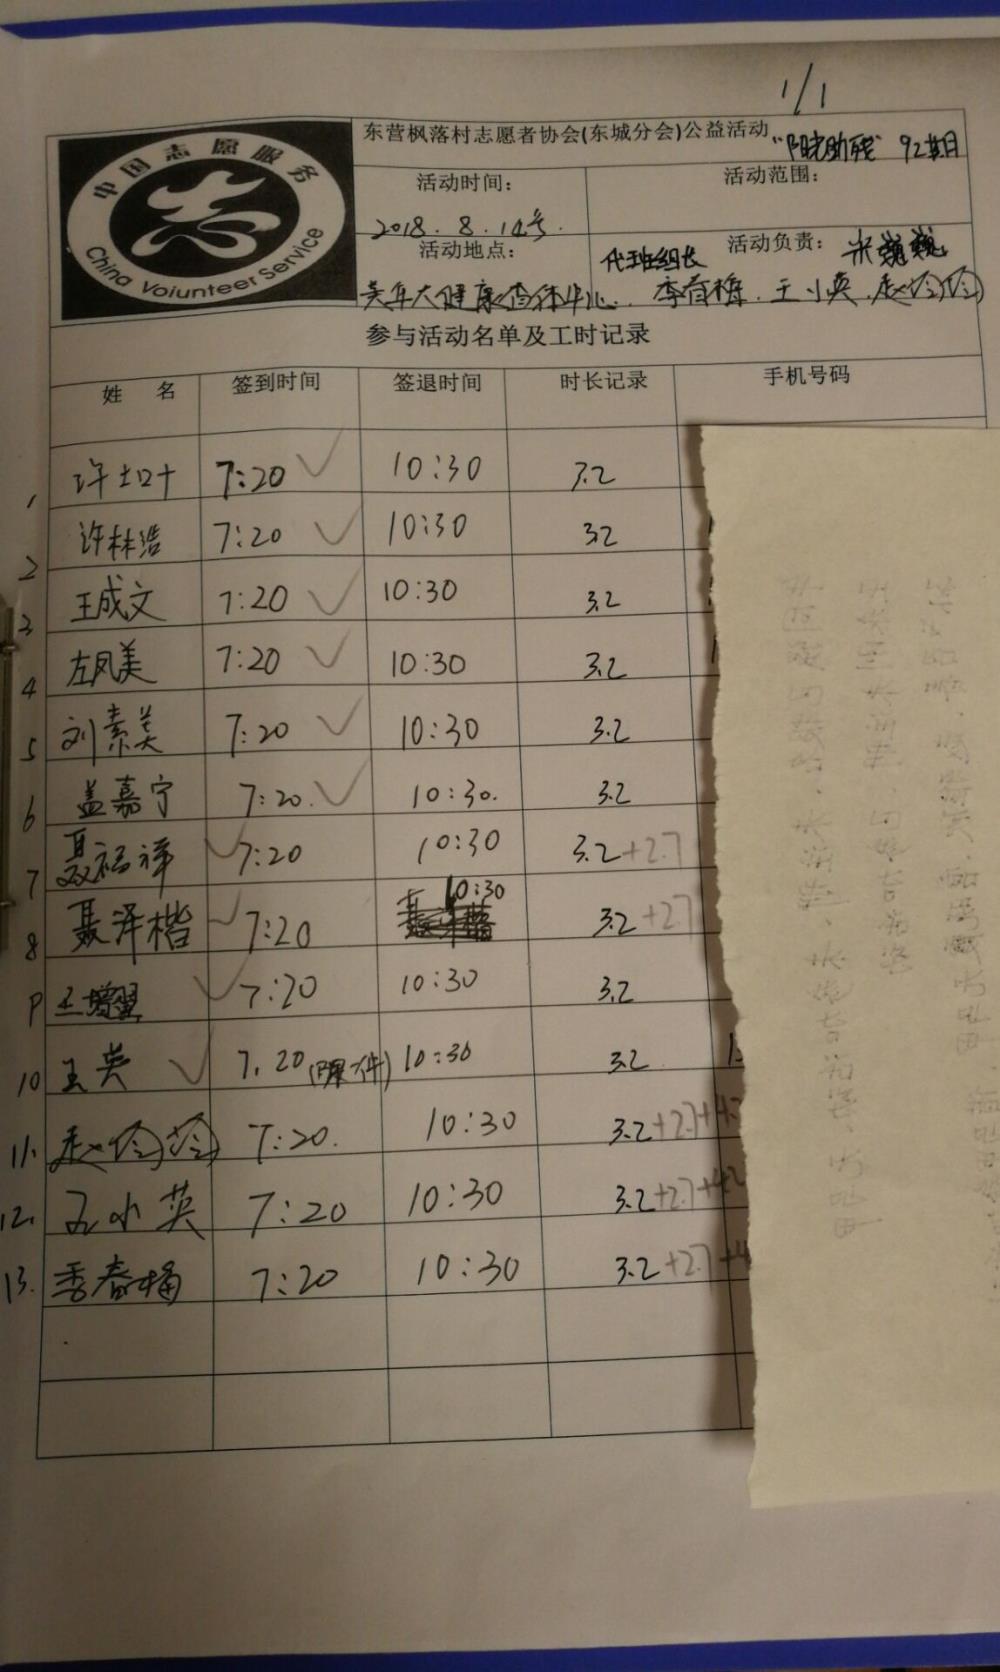 1/1
中国志愿服务
China Voiunteer Service
东营枫落村志愿者协会(东城分会)公益活动 "阳光助残" 92期
活动时间： 活动范围：
2018.8.14号.
活动地点： 代班组长 活动负责：
美年大健康查体中心. 李春梅. 王小英. 赵伶伶
参与活动名单及工时记录
姓 名 签到时间 签退时间 时长记录 手机号码
1 许 7:20 ✓ 10:30 3.2
2 许林浩 7:20 ✓ 10:30 3.2
3 王成文 7:20 ✓ 10:30 3.2
4 左凤美 7:20 ✓ 10:30 3.2
5 刘素美 7:20 ✓ 10:30 3.2
6 盖嘉宁 7:20. ✓ 10:30. 3.2
7 聂福祥 ✓ 7:20 10:30 3.2+2.7
8 聂泽楷 ✓ 7:20 10:30 3.2+2.7
9 王增翼 ✓ 7:20 10:30 3.2
10 王英 ✓ 7.20 10:30 3.2
11. 赵伶伶 7:20. 10:30 3.2+2.7+4.2
12. 王小英 7:20 10:30 3.2+2.7+4.2
13. 李春梅 7:20 10:30 3.2+2.7+4